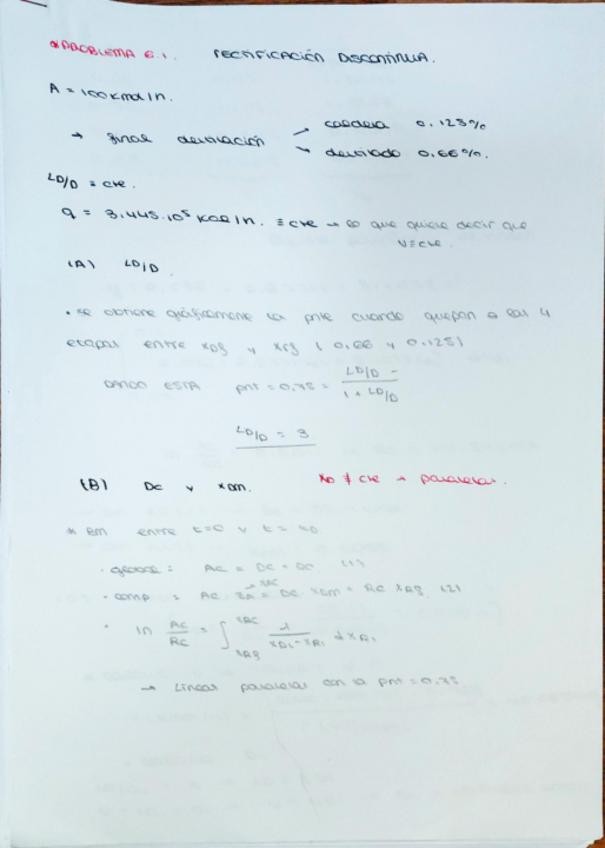 *PROBLEMA 6.1. RECTIFICACIÓN DISCONTINUA.
A = 100 kmol/n.
→ final destilación
caldera 0.125%
destilado 0.66%.
LD/D = cte.
q = 3.445·10⁵ kcal/n. ≡ cte → lo que quiere decir que
V ≡ cte.
(A) LD/D.
• se obtiene gráficamente la pnte cuando quepan a las 4
etapas entre xDf y xRf (0.66 y 0.125)
DANDO ESTA pnt = 0,75 = LD/D / 1 + LD/D
LD/D = 3
(B) Dc y xDm. XD ≠ cte → paralelas.
* BM entre t=0 y t=
· global: Ac = Dc + (1)
· comp: Ac · = Dc xDm + Rc xRf (2)
· ln Ac/Rc = ∫ 1/xDi - xRi dxRi
→ Lineas paralelas con la pnt = 0.75